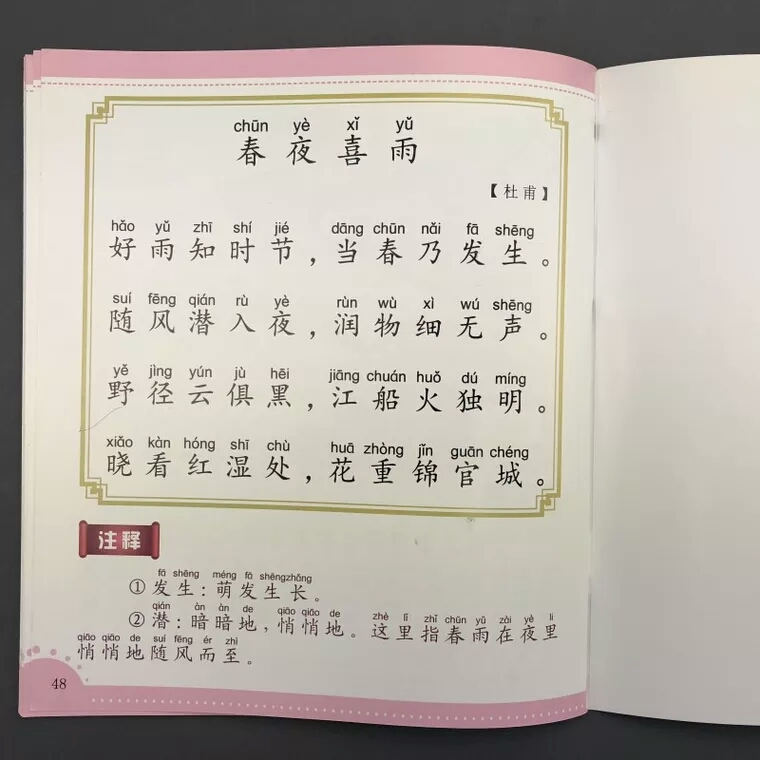 chūn yè xǐ yǔ
春夜喜雨
【杜甫】
hǎo yǔ zhī shí jié dāng chūn nǎi fā shēng
好雨知时节，当春乃发生。
suí fēng qián rù yè rùn wù xì wú shēng
随风潜入夜，润物细无声。
yě jìng yún jù hēi jiāng chuán huǒ dú míng
野径云俱黑，江船火独明。
xiǎo kàn hóng shī chù huā zhòng jǐn guān chéng
晓看红湿处，花重锦官城。
注释
fā shēng méng fā shēng zhǎng
①发生：萌发生长。
qián àn àn de qiāo qiāo de zhè lǐ zhǐ chūn yǔ zài yè li
②潜：暗暗地，悄悄地。这里指春雨在夜里
qiāo qiāo de suí fēng ér zhì
悄悄地随风而至。
48